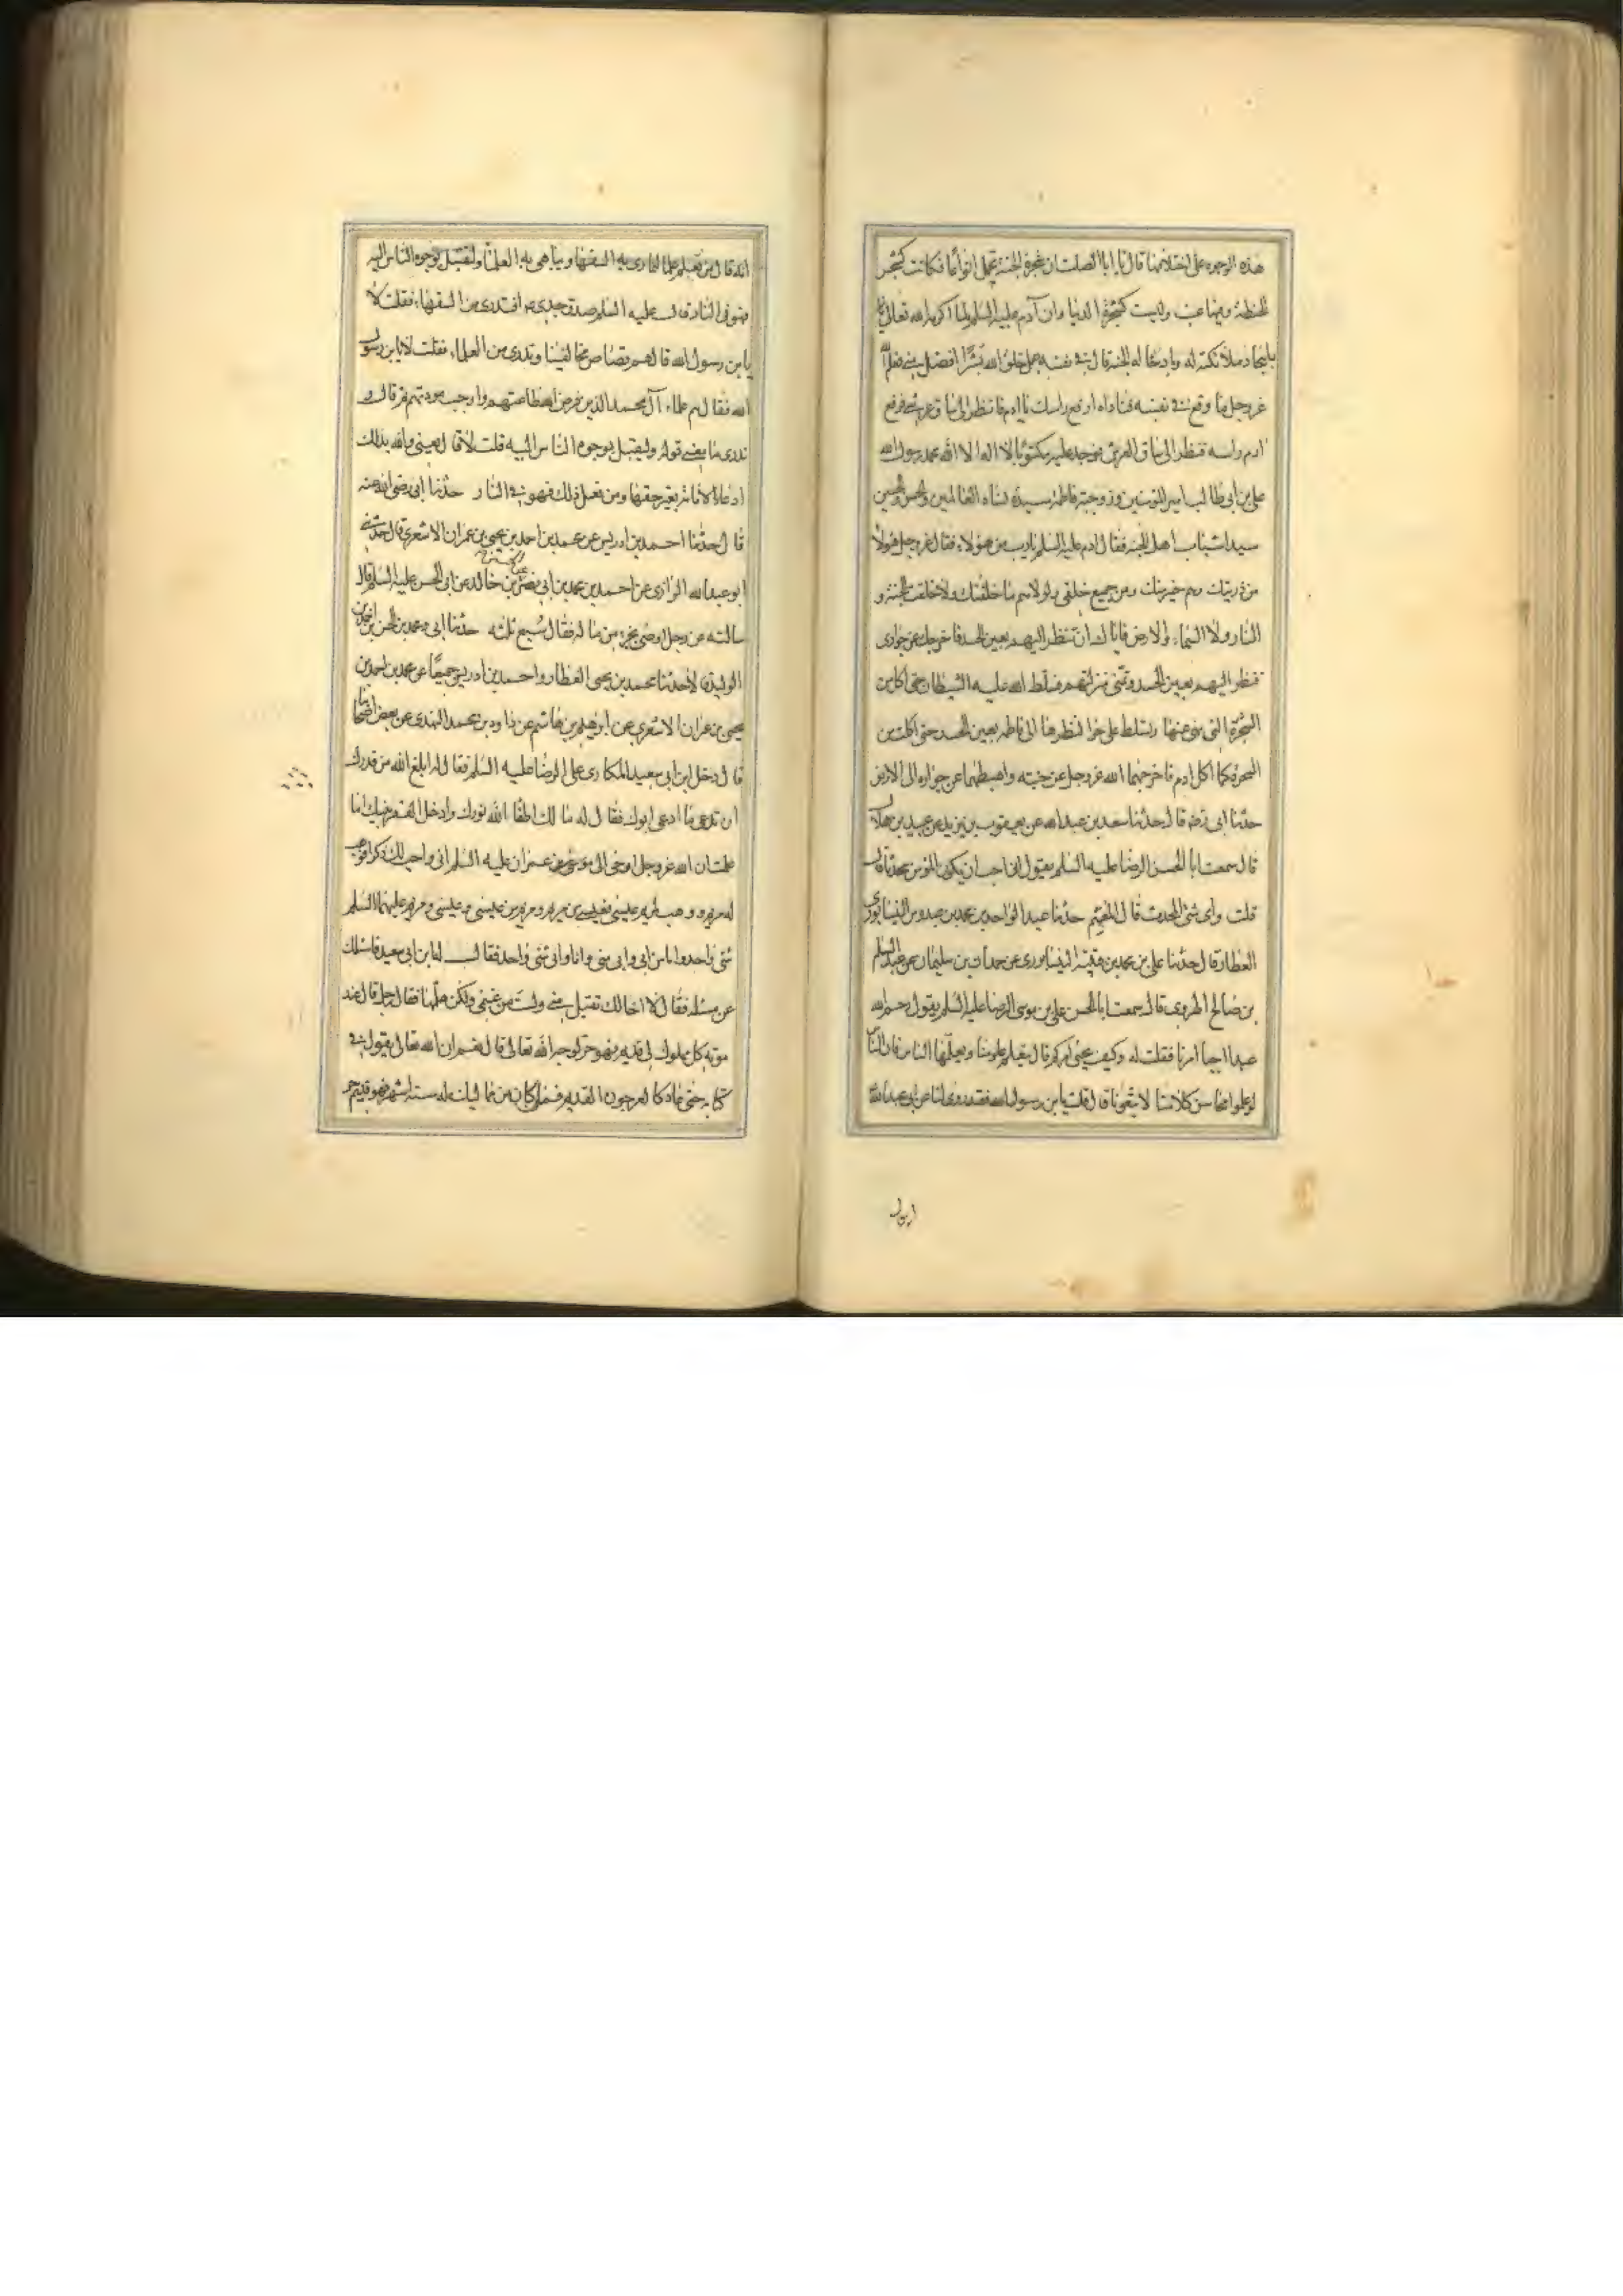 هذه الوجوه على اختلافها قال يا ابا الصلت ان شجرة الجنة تحمل انواعا فكانت شجرة
الحنطة وفيها عنب وليست كشجرة الدنيا وان آدم عليه السلم لما اكرمه الله تعالى
باسجاد ملائكته له وبادخاله الجنة قال في نفسه هل خلق الله بشرا افضل مني فعلم الله
عز وجل ما وقع في نفسه فناداه ارفع راسك يا ادم فانظر الى ساق عرشي فرفع
ادم راسه فنظر الى ساق العرش فوجد عليه مكتوبا لا اله الا الله محمد رسول الله
علي بن ابي طالب امير المؤمنين وزوجته فاطمة سيدة نساء العالمين والحسن والحسين
سيدا شباب اهل الجنة فقال ادم عليه السلم يا رب من هؤلاء فقال عز وجل هؤلاء
من ذريتك وهم خير منك ومن جميع خلقي ولولاهم ما خلقتك ولا خلقت الجنة و
النار ولا السماء والارض فاياك ان تنظر اليهم بعين الحسد فاخرجك عن جواري
فنظر اليهم بعين الحسد وتمنى منزلتهم فسلط الله عليه الشيطان حتى اكل من
الشجرة التي نهى عنها وتسلط على حوا لنظرها الى فاطمه بعين الحسد حتى اكلت من
الشجرة كما اكل ادم فاخرجهما الله عز وجل عن جنته واهبطهما عن جواره الى الارض
حدثنا ابي رضه قال حدثنا سعد بن عبد الله عن يعقوب بن يزيد عن عبيد بن هلال
قال سمعت ابا الحسن الرضا عليه السلم يقول اني احب ان يكون المؤمن محدثا قال
قلت واي شئ المحدث قال المفهم حدثنا عبد الواحد بن محمد بن عبدوس النيسابوري
العطار قال حدثنا علي بن محمد بن قتيبة النيسابوري عن حمدان بن سليمان عن عبد السلم
بن صالح الهروي قال سمعت ابا الحسن علي بن موسى الرضا عليه السلم يقول رحم الله
عبدا احيا امرنا فقلت له وكيف يحيى امركم قال يتعلم علومنا ويعلمها الناس فان الناس
لو علموا محاسن كلامنا لاتبعونا قال قلت يا بن رسول الله فقد روي لنا عن ابي عبد الله
انه قال من تعلم علما ليماري به السفهاء ويباهي به العلماء وليقبل بوجوه الناس اليه
فهو في النار قال عليه السلم صدق جدي ع افتدري من السفهاء فقلت لا
يا بن رسول الله قال هم قصاص مخالفينا وتدري من العلماء فقلت لا يا بن رسول
الله فقال هم علماء آل محمد الذين فرض الله طاعتهم واوجب مودتهم ثم قال و
تدري ما معنى قوله وليقبل بوجوه الناس اليه قلت لا قال يعني والله بذلك
ادعاء الامامة بغير حقها ومن فعل ذلك فهو في النار حدثنا ابي رضي الله عنه
قال حدثنا احمد بن ادريس عن محمد بن احمد بن يحيى بن عمران الاشعري قال حدثني
ابو عبد الله الرازي عن احمد بن محمد بن ابي نصر عن الحسين بن خالد عن ابي الحسن عليه السلم قال
سالته عن رجل اوصى بجزء من ماله فقال سبع ثلثه حدثنا ابي ومحمد بن الحسن بن احمد بن
الوليد قالا حدثنا محمد بن يحيى العطار واحمد بن ادريس جميعا عن محمد بن احمد بن
يحيى بن عمران الاشعري عن ابرهيم بن هاشم عن داود بن محمد النهدي عن بعض اصحابنا
قال دخل ابن ابي سعيد المكاري على الرضا عليه السلم فقال له ابلغ الله من قدرك
ان تدعي ما ادعى ابوك فقال له ما لك اطفا الله نورك وادخل الفقر بيتك اما
علمت ان الله عز وجل اوحى الى موسى بن عمران عليه السلم اني واهب لك ذكرا فوهب
له مريم ووهب لمريم عيسى فعيسى من مريم ومريم من عيسى وعيسى ومريم عليهما السلم
شئ واحد وانا من ابي وابي مني وانا وابي شئ واحد فقال له ابن ابي سعيد فاسئلك
عن مسئلة فقال لا اخالك تقبل مني ولست من غنمي ولكن هلمها فقال رجل قال عند
موته كل مملوك لي قديم فهو حر لوجه الله تعالى قال نعم ان الله تعالى يقول في
كتابه حتى عاد كالعرجون القديم فما كان من مماليكه له ستة اشهر فهو قديم حر